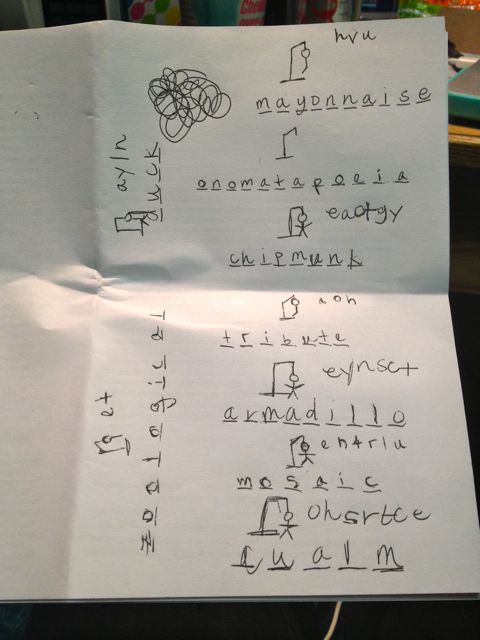 hvu
mayonnaise
onomatapoeia
eaotgy
chipmunk
aoh
tribute
eynsct
armadillo
entrlu
mosaic
ohsrtce
qualm
ayln
duck
et
zoological